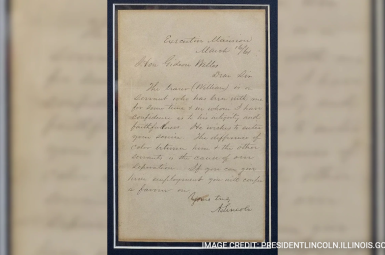 Executive Mansion
March 16/61
Hon Gideon Welles
Dear Sir
The bearer (William) is a
servant who has been with me
for some time & in whom I have
confidence as to his integrity and
faithfulness. He wishes to enter
your service. The difference of
color between him & the other
servants is the cause of our
separation. If you can give
him employment you will confer
a favor on
Yours truly
A. Lincoln
IMAGE CREDIT: PRESIDENTLINCOLN.ILLINOIS.GO